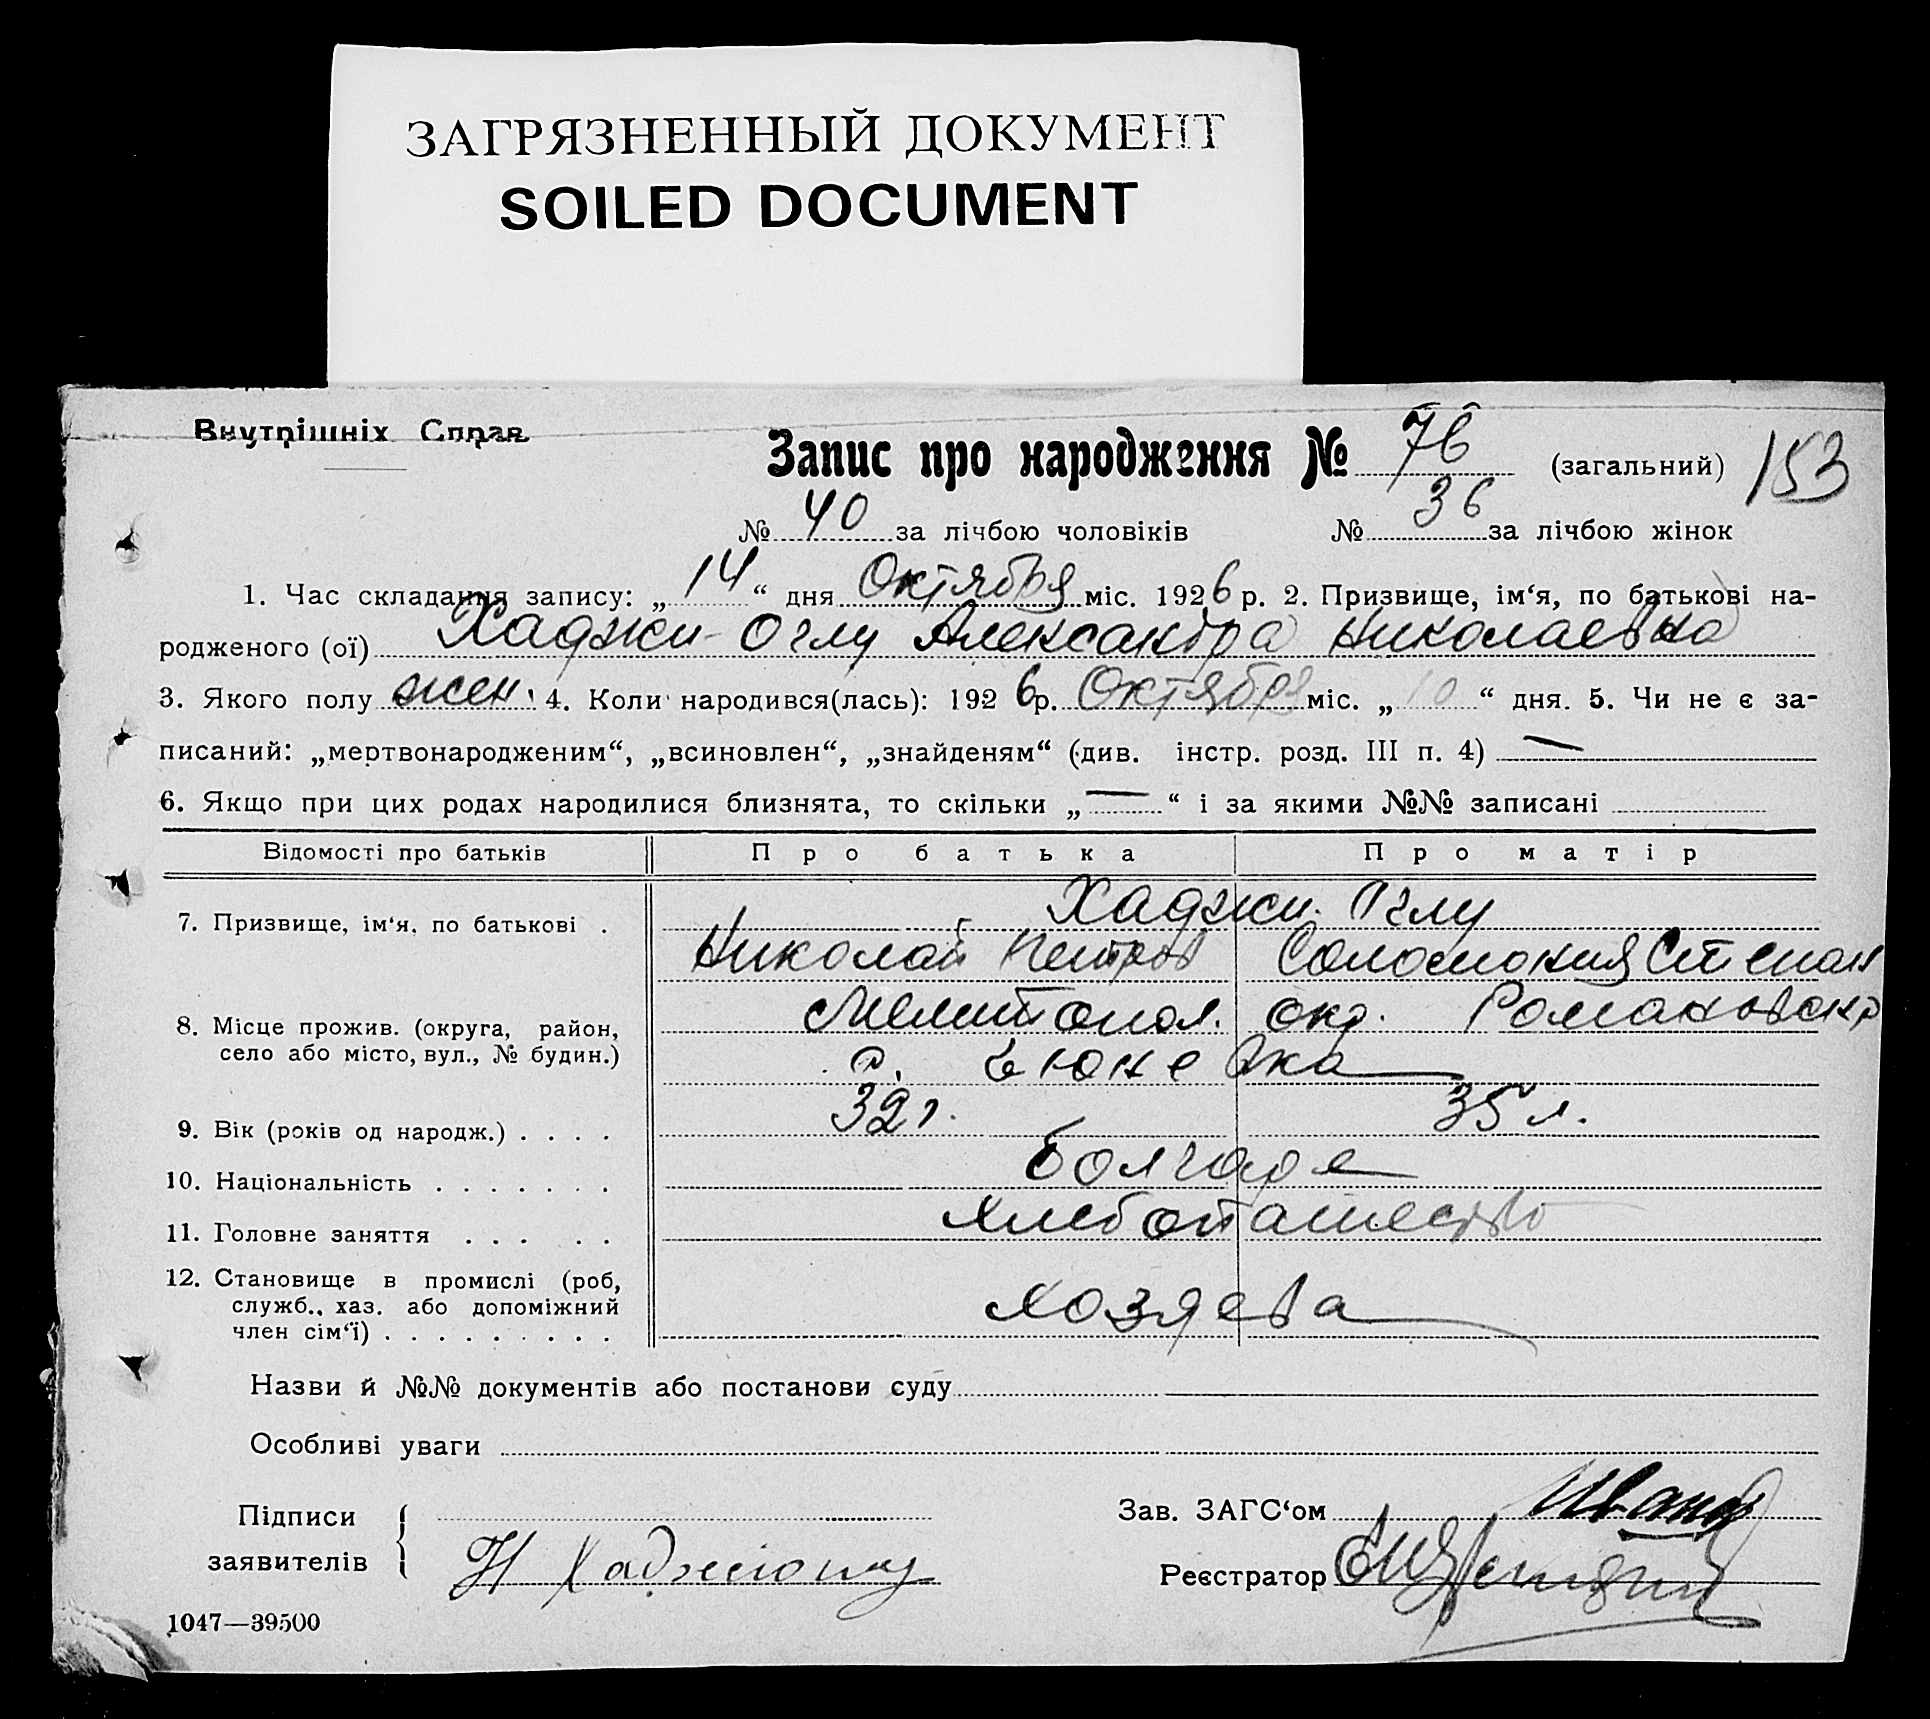 ЗАГРЯЗНЕННЫЙ ДОКУМЕНТ
SOILED DOCUMENT
Внутрішніх Справ
Запис про народження № 76 (загальний) 153
№ 40 за лічбою чоловіків № 36 за лічбою жінок
1. Час складання запису: „14“ дня Октября міс. 1926 р. 2. Призвище, ім‘я, по батькові на-
родженого (ої) Хаджи-Оглу Александра Николаевна
3. Якого полу жен. 4. Коли народився(лась): 1926 р. Октября міс. „10“ дня. 5. Чи не є за-
писаний: „мертвонародженим“, „всиновлен“, „знайденям“ (див. інстр. розд. III п. 4) —
6. Якщо при цих родах народилися близнята, то скільки „—“ і за якими №№ записані
Відомості про батьків Про батька Про матір
Хаджи-Оглу
7. Призвище, ім‘я, по батькові .
Николай Петров Соломония Степан
8. Місце прожив. (округа, район, Мелитопол. окр. Романовско
село або місто, вул., № будин.)
9. Вік (років од народж.) . . . . 32 г. 35 л.
10. Національність . . . . . . . Болгаре
11. Головне заняття . . . . . Хлебопашество
12. Становище в промислі (роб,
служб., хаз. або допоміжний Хозяева
член сім‘ї) . . . . . . . . .
Назви й №№ документів або постанови суду
Особливі уваги
Підписи Зав. ЗАГС‘ом Иванов
заявителів Н Хаджиоглу Реєстратор
1047—39500